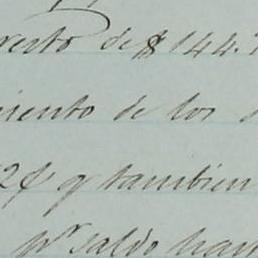 resto de $144.
miento de los
2f y tambien
pr saldo has